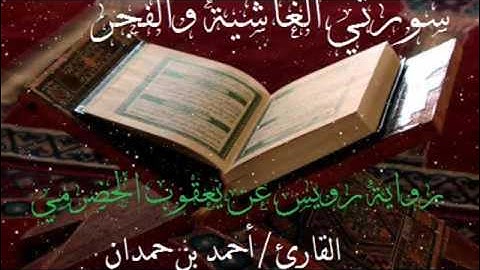 سورتي الغاشية والفجر
رواية رويس عن يعقوب الحضرمي
القارئ/أحمد بن حمدان